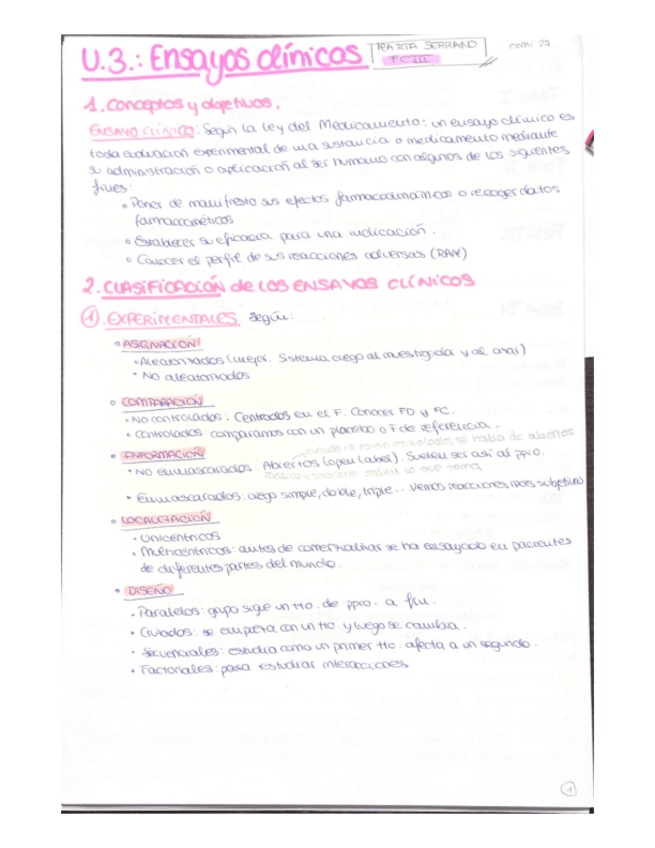 U.3.: Ensayos clínicos
MARTA SERRANO
FCIII
1. Conceptos y objetivos.
ENSAYO CLÍNICO: Según la Ley del Medicamento: un ensayo clínico es
toda evaluación experimental de una sustancia o medicamento mediante
su administración o aplicación al ser humano con algunos de los siguientes
fines:
• Poner de manifiesto sus efectos farmacodinámicos o recoger datos
farmacocinéticos
• Establecer su eficacia para una indicación.
• Conocer el perfil de sus reacciones adversas (RAM)
2. CLASIFICACIÓN de LOS ENSAYOS CLÍNICOS
① EXPERIMENTALES según:
• ASIGNACIÓN
• Aleatorizados (mejor. Sistema ciego al investigador y al
• No aleatorizados
• COMPARACIÓN
• NO controlados: Centrados en el F. Conocer FD y FC.
• Controlados: comparamos con un placebo o F de referencia.
• INFORMACIÓN
cuando no están se habla de abiertos
• NO enmascarados: Abiertos (open label). Suelen ser así al ppio.
Médico y paciente saben lo que toma
• Enmascarados: ciego simple, doble, triple... vemos reacciones más subjetivas
• LOCALIZACIÓN
• Unicéntricos
• Multicéntricos: antes de comercializar se ha ensayado en pacientes
de diferentes partes del mundo.
• DISEÑO
• Paralelos: grupo sigue un tto. de ppio. a fin.
• Cruzados: se empieza con un tto y luego se cambia.
• Secuenciales: estudia como un primer tto. afecta a un segundo.
• Factoriales: para estudiar interacciones
1